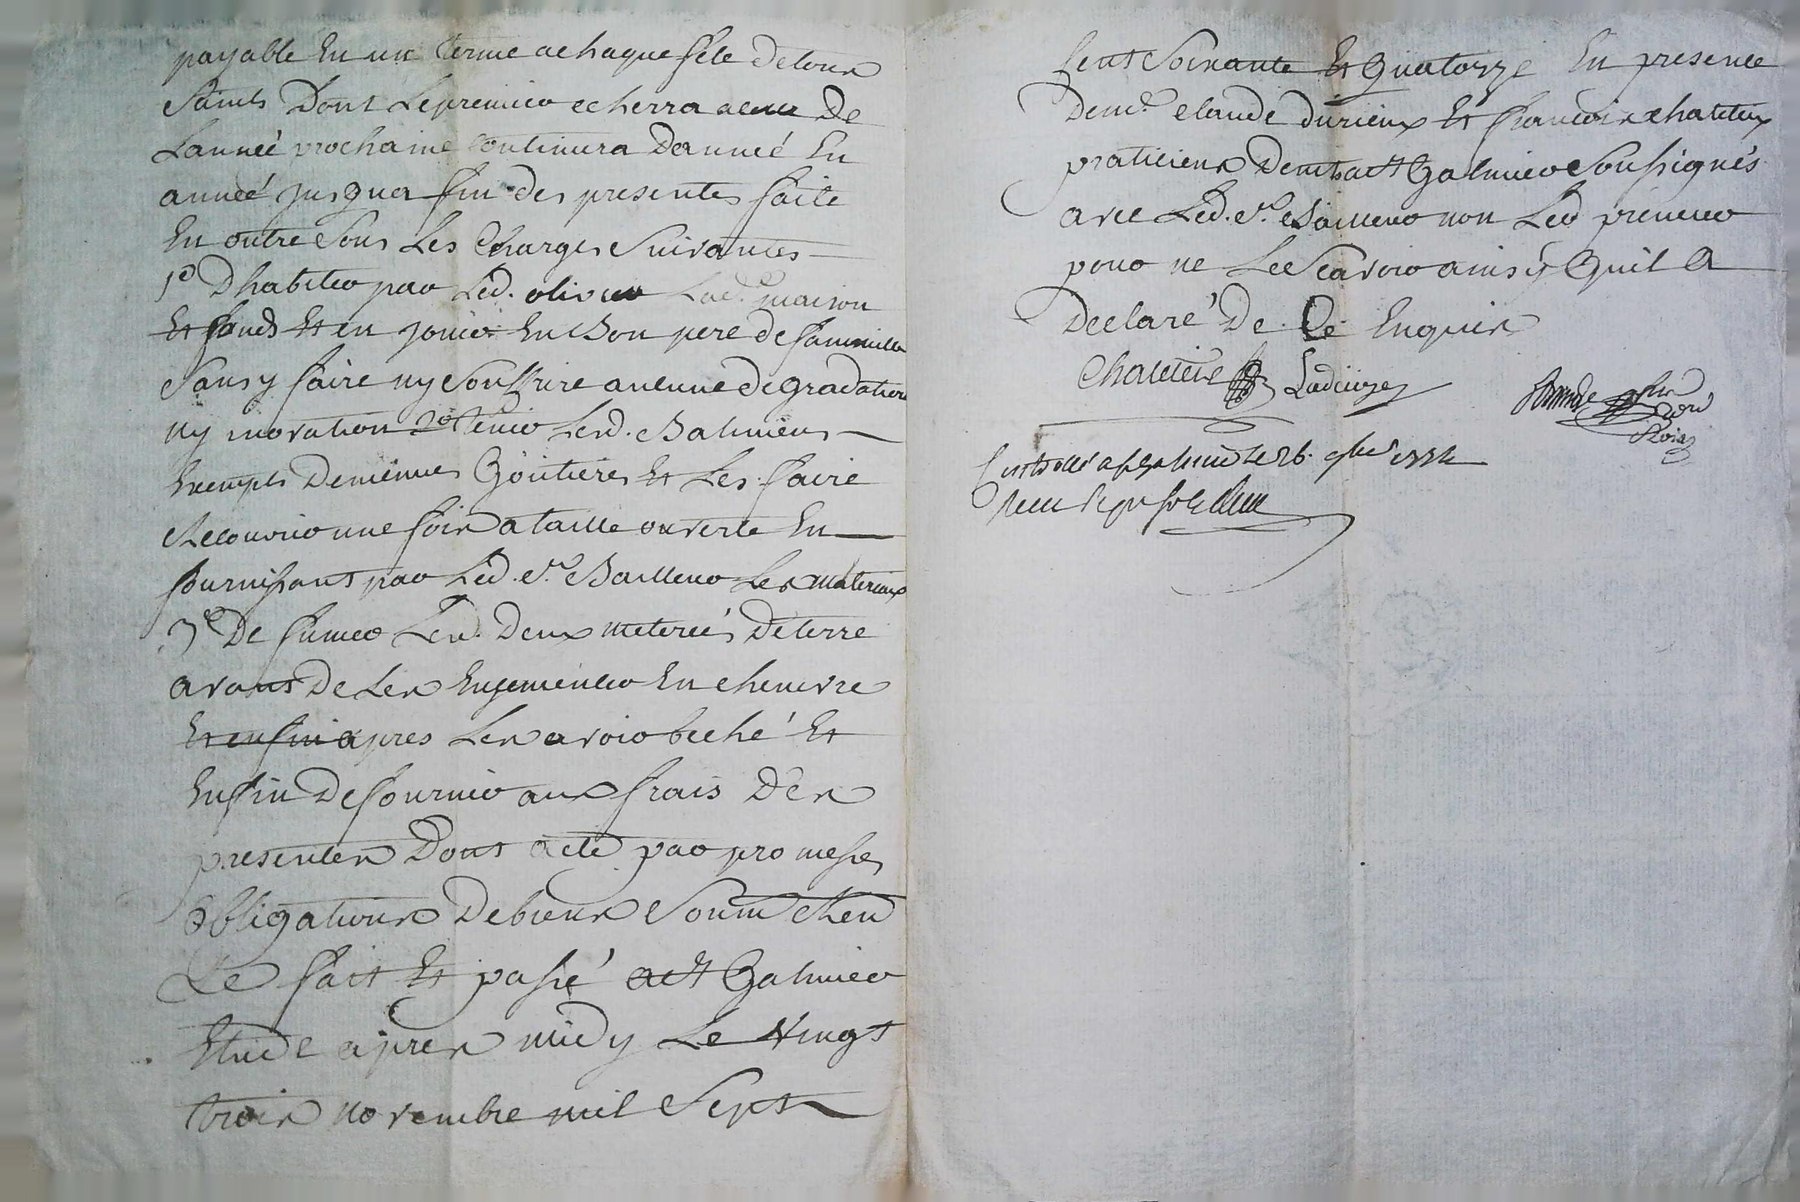 payable En un terme a chaque fête detous
Saints Dont Lepremier echerra a celle De
Lannée prochaine Continura Dannée En
année jusqua fin des presentes faite
En outre Sous Les Charges Suivantes
1º Dhabiter par Led. olivier Lad. maison
Et fonds Et en jouir En Bon pere de famille
Sans y faire ny Souffrire aucune degradation
ny inovation 2º tenir Lesd. Batimens
Exempts Demenues Goutieres Et Les faire
Recouvrir une fois a taille ouverte En
fournissant par Led. Sr. Bailleur Les materiaux
3º De fumer Lesd. Deux meterées De terre
avant De Les Ensemencer En chenevre
Et enfin apres Les avoir beché Et
Enfin De fournir aux frais Des
presentes Dont acte par promesses
obligations De biens Soum Ren
Le fait Et passé a St Galmier
Etude apres midy Le Vingt
trois novembre mil Sept
Cent Soixante Et Quatorze En presence
De mr. claude Durieux Et francois chateteux
praticiens Demts a St Galmier Soussignés
avec Led. Sr. Bailleur non Led preneur
pour ne Le Scavoir ainsy Quil A
Declaré De Ce Enquis
Ladeveze
Controllé a St galmier le 26. 9bre 1774